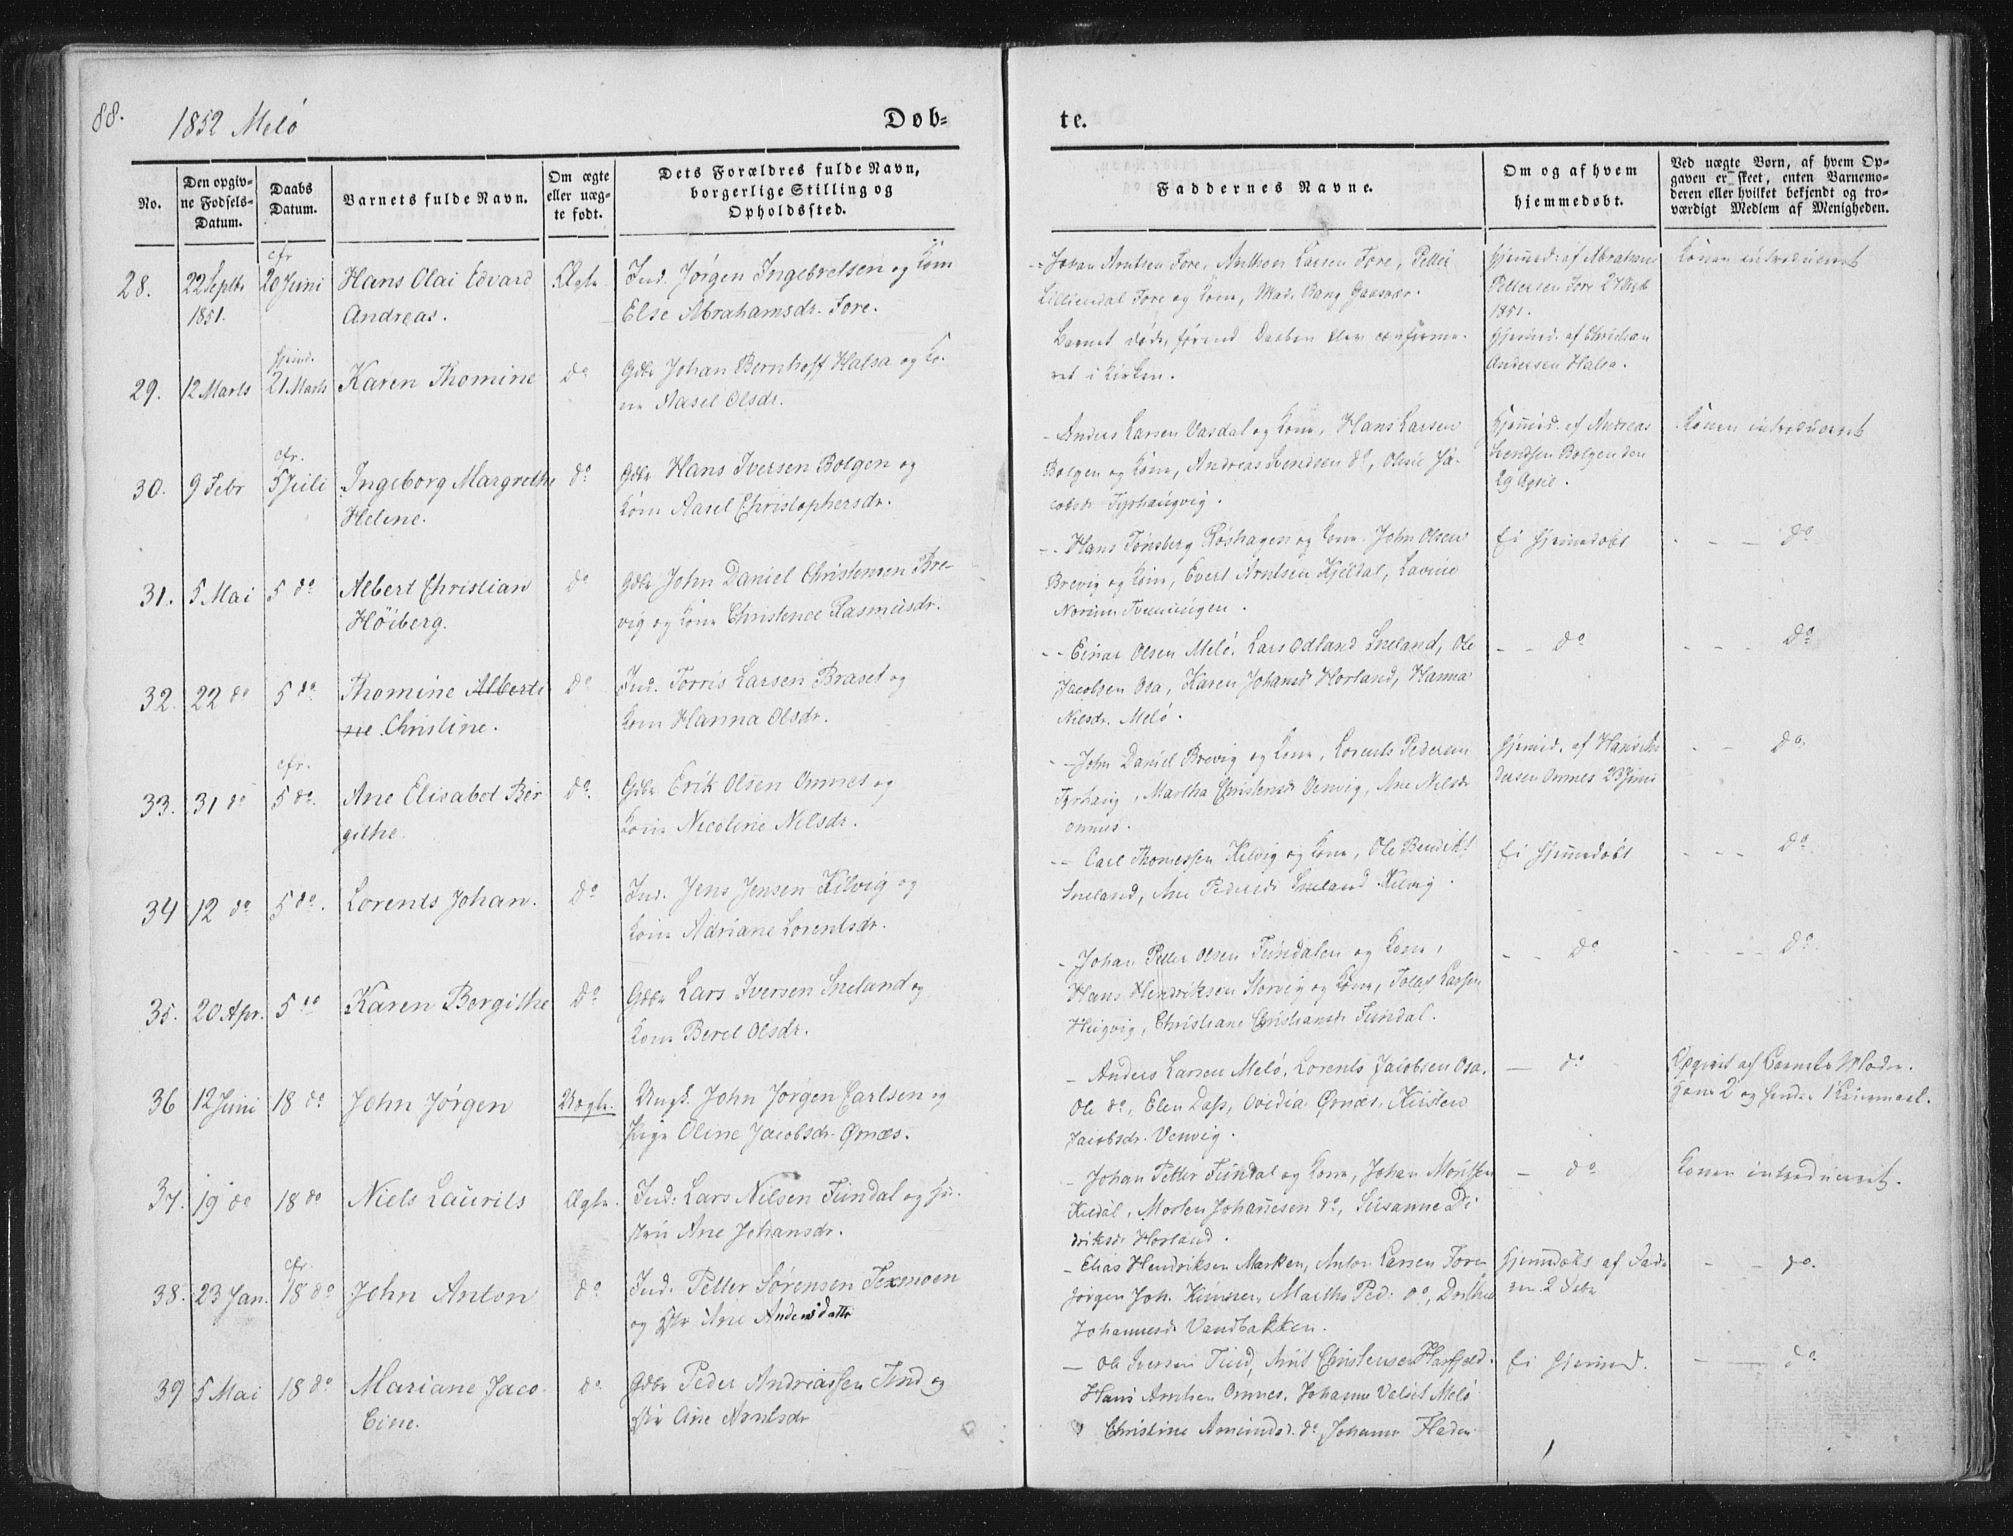 88.
1852 Melö
Døb-
te.
No.
Den opgiv-
ne Fødsels-
Datum.
Daabs
Datum.
Barnets fulde Navn.
Om ægte
eller uæg-
te født.
Dets Forældres fulde Navn,
borgerlige Stilling og
Opholdssted.
Faddernes Navne.
Om og af hvem
hjemmedøbt.
Ved uægte Børn, af hvem Op-
gaven er skeet, enten Barnemo-
deren eller hvilket bekjendt og tro-
værdigt Medlem af Menigheden.
28. 22 Septbr 1851.
cfr 20 Juni
Hans Olai Edvard
Andreas.
Ægte
Ind. Jørgen Ingebretsen og Kone
Else Abrahamsdr. Fore.
Johan Arntsen Fore, Anthon Larsen Fore, Petter
Lilliendal Fore og Kone, Mad. Bang Gaasvær.
hjemmed. af Abraham
Pettersen Fore
1851.
Konen introduceret
29. 12 Marts
hjemd. 21 Marts
Karen Thomine
do
Gdbr Johan Bernhoff Halsa og Ko-
ne Aasel Olsdr.
Barnet døde, førend Daaben blev confirme-
ret i Kirken.
hjemmed. af Christian
Andersen Halsa.
30. 9 Febr
cfr. 5 Juli
Ingeborg Margrethe
Helene.
do
Gdbr Hans Iversen Bolgen og
Kone Aasel Christophersdr.
Anders Larsen Vasdal og Kone, Hans Larsen
Bolgen og Kone, Andreas Svendsen do, Olsie Ja-
cobsdr Tyrhaugvig.
hjemmed. af Andreas
Svendsen Bolgen den
29 April.
Konen introduceret
31. 5 Mai
5 do
Albert Christian
Höiberg.
do
Gdbr John Daniel Christensen Bre-
vig og Kone Christence Rasmusdr.
Hans Tönsberg Röshagen og Kone, John Olsen
Brevig og Kone, Evert Arntsen Kjeldal, Lavine
Norum
Ei hjemmedøbt
do
32. 22 do
5 do
Thomine Alberti
ne Christine.
do
Ind. Torris Larsen Braset og
Kone Hanna Olsdr.
Einar Olsen Melö, Lars Odland Sneland, Ole
Jacobsen Osa, Karen Johansdr Horland, Hanna
Nilsdr. Melö.
do
do
33. 31 do
cfr. 5 do.
Ane Elisabet Ber
githe.
do.
Gdbr Erik Olsen Omnes og
Kone Nicoline Nilsdr.
John Daniel Brevig og Kone, Lorents Pedersen
Tyrhaug, Martha Christensdr Venvig, Ane Nilsdr
Omnes.
hjemmed. af Hans
Omnes 23 Juni
do.
34 12 do
5 do.
Lorents Johan.
do
Ind. Jens Jensen Kilvig og
Kone Adriane Lorentsdr.
Carl Thomessen Kilvig og Kone, Ole Bendikt
Sneland, Ane Pedersdr Sneland Kilvig.
Ei hjemmedøbt
do
35. 20 Apr.
5 do
Karen Bergithe
do
Gdbr Lars Iversen Sneland og
Kone Beret Olsdr.
Johan Petter Olsen Fundalen og Kone,
Hans Hendriksen Storvig og Kone, Tollef Larsen
Christiane Christiansdr Fundal.
do
do.
36 12 Juni
18 do
John Jørgen
Uægte.
Ungk. John Jørgen Carlsen og
Pige Oline Jacobsdr. Ørnæs.
Anders Larsen Melö, Lorents Jacobsen Osa,
Ole do, Elen Dass, Ovedia Ørnæs, Kirsten
Jacobsdr. Venvig.
do
Opgivet af Barnets Moder.
Hans 2 og hendes 1 Leiermaal.
37. 19 do
18 do
Niels Laurits
Ægte.
Ind: Lars Nilsen Fundal og Hu-
stru Ane Johansdr.
Johan Petter Fundal og Kone, Johan
Kildal, Morten Johannesen do, Susanne Di
driksdr Horland.
do
Konen introduceret.
38. 23 Jan.
cfr. 18 do
John Anton
do
Ind. Petter Sörensen Texmoen
og Hr Ane Andersdatter
Elias Hendriksen Marken, Anton Larsen Fore
Jørgen Joh. Martha Ped. do, Dorthea
Johannesdr Vandbakken.
hjemmedøbt af Fade
ren 2 Febr
do.
39 5 Mai
18 do
Mariane Jaco
bine.
do
Gdbr Peder Andreassen Tind og
Hr Ane Arntsdr
Ole Iversen Tind, Arnt Christensen
Hans Arntsen Omnes, Johanna Melö
Christine do, Johanna Fladen
Ei hjemmed.
do